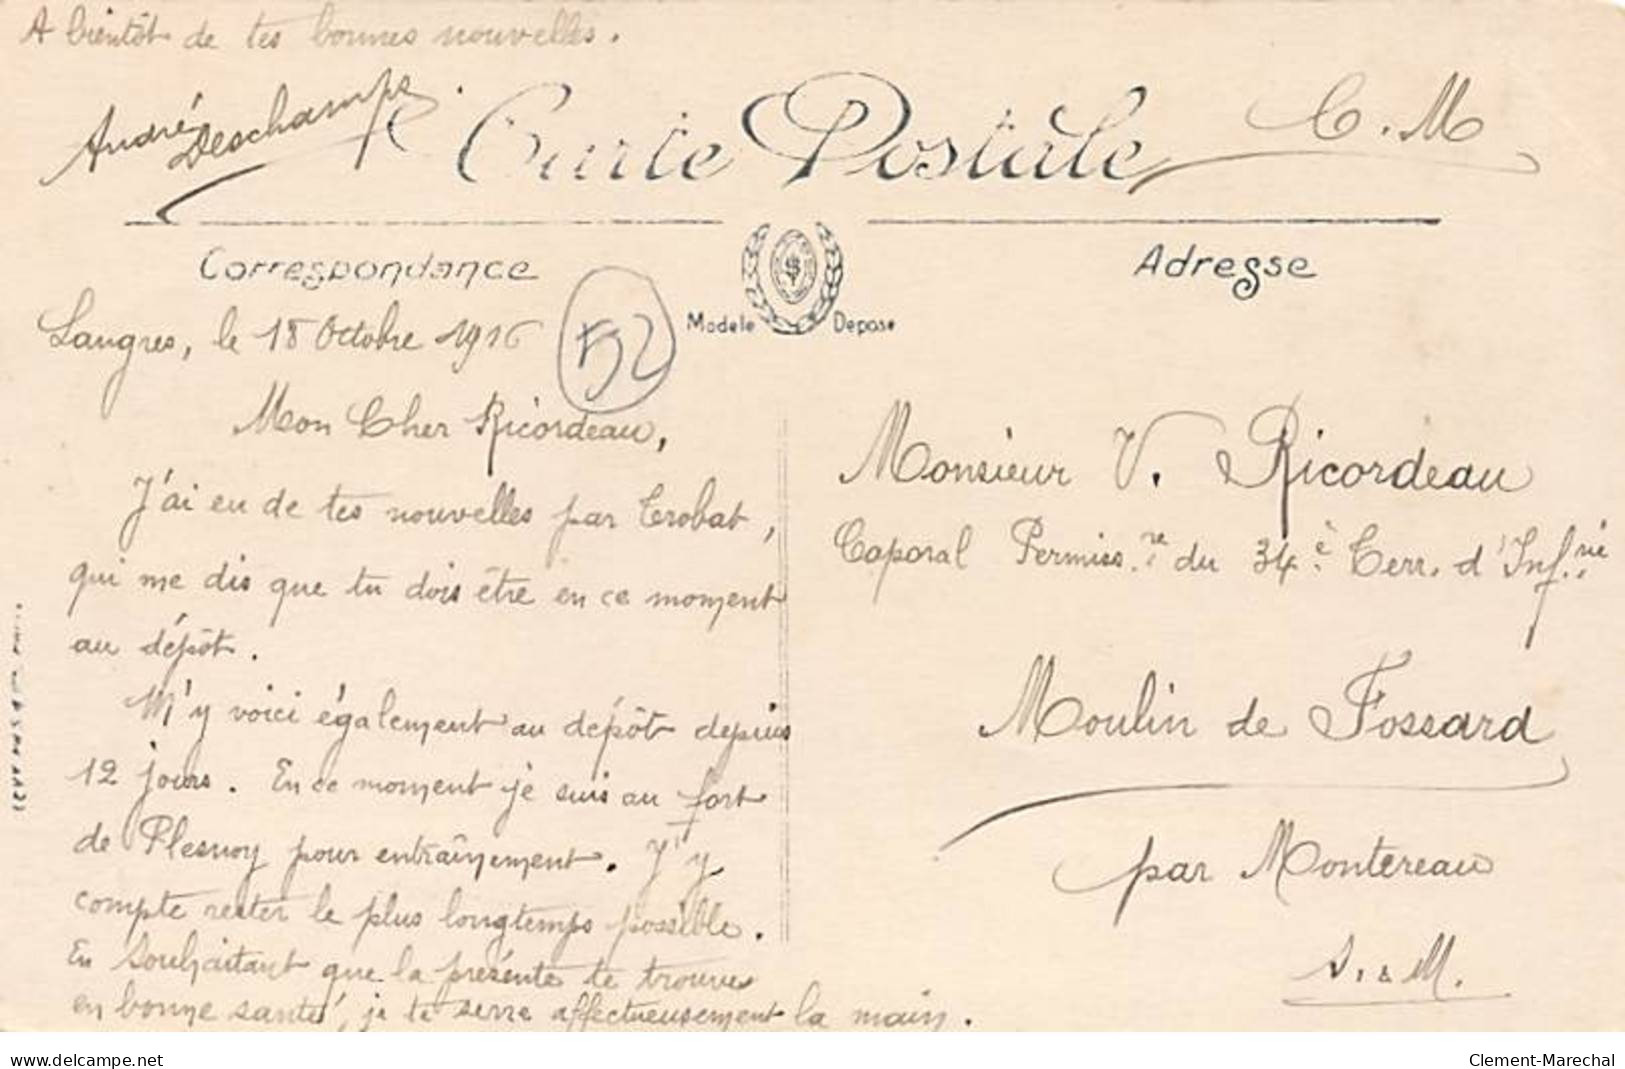 A bientôt de tes bonnes nouvelles.
André Deschamps
Carte Postale
C. M
Correspondance
Adresse
Modele Depose
Langres, le 18 Octobre 1916
52
Mon Cher Ricordeau,
J'ai eu de tes nouvelles par Trobat,
qui me dis que tu dois être en ce moment
au dépôt.
M'y voici également au dépôt depuis
12 jours. En ce moment je suis au fort
de Plesnoy pour entraînement. J'y
compte rester le plus longtemps possible.
En souhaitant que la présente te trouve
en bonne santé, je te serre affectueusement la main.
Monsieur V. Ricordeau
Caporal Permiss.re du 34.e Terr. d'Inf.rie
Moulin de Fossard
par Montereau
S. & M.
www.delcampe.net
Clement-Marechal